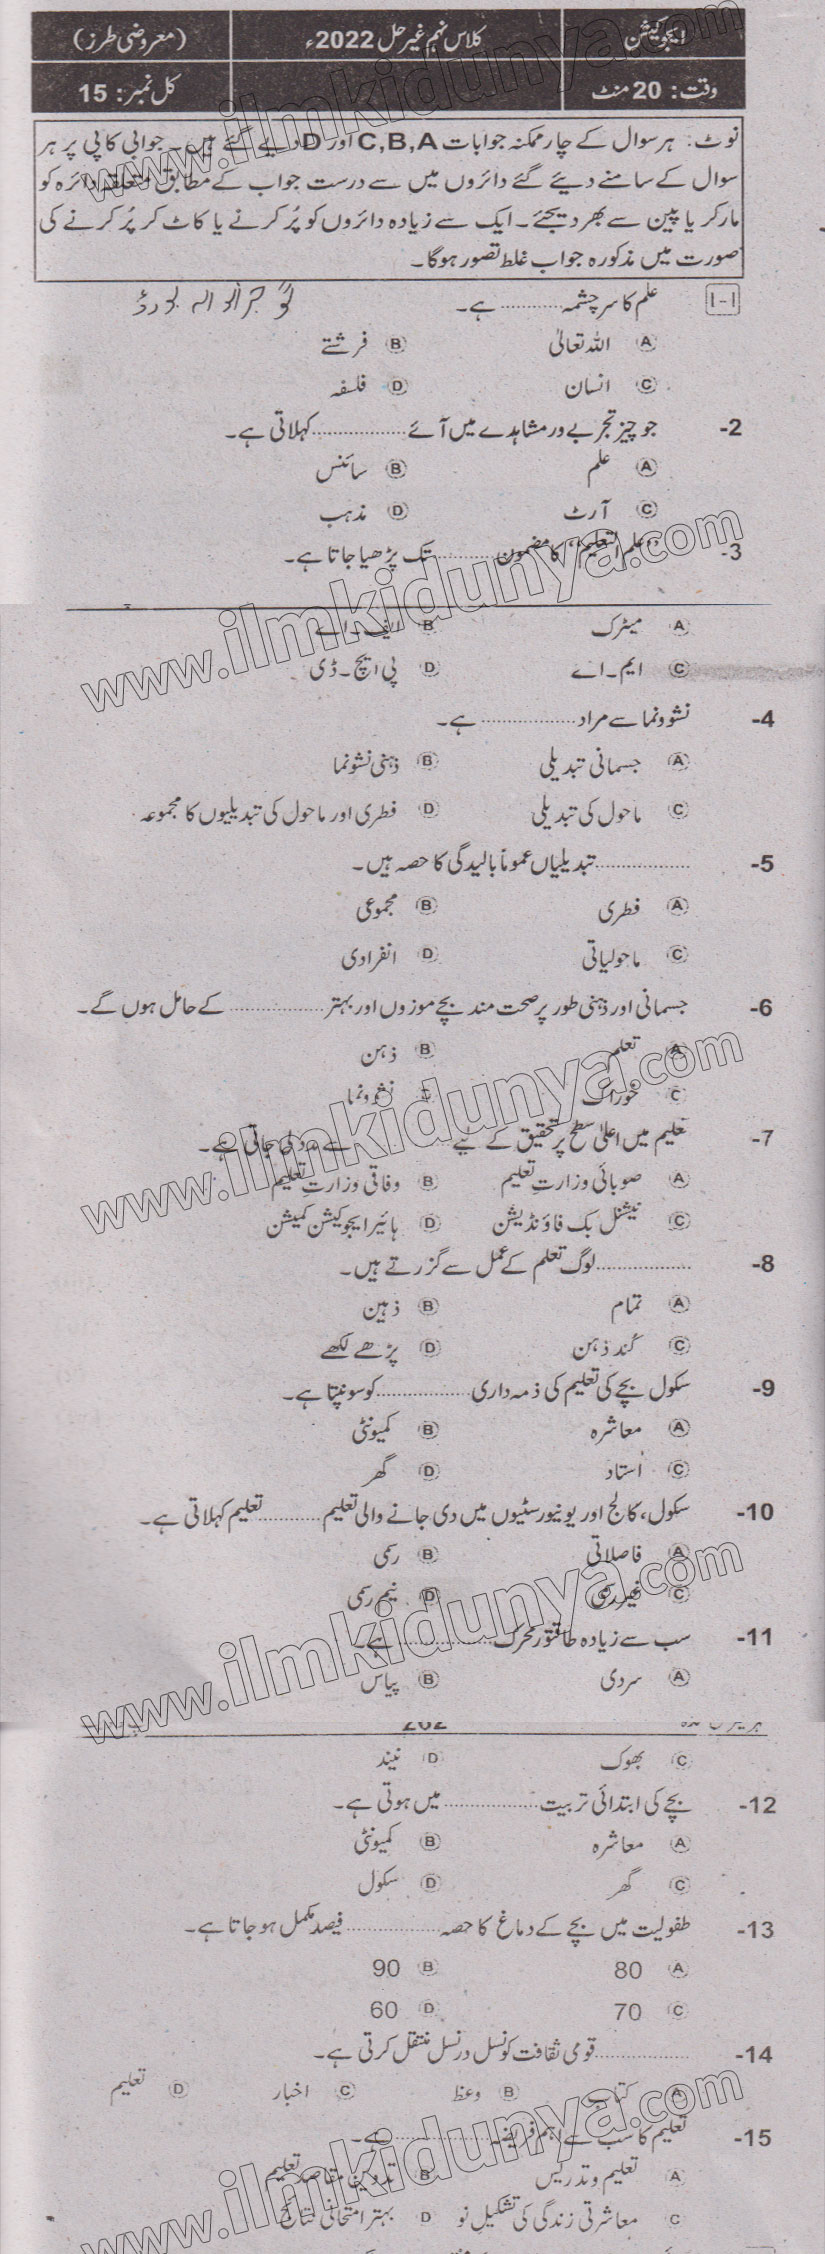 ایجوکیشن کلاس نہم غیر حل 2022ء (معروضی طرز)
وقت: 20 منٹ کل نمبر: 15
نوٹ: ہر سوال کے چار ممکنہ جوابات C,B,A اور D دیے گئے ہیں۔ جوابی کاپی پر ہر
سوال کے سامنے دیئے گئے دائروں میں سے درست جواب کے مطابق متعلقہ دائرہ کو
مارکر یا پین سے بھر دیجئے۔ ایک سے زیادہ دائروں کو پُر کرنے یا کاٹ کر پُر کرنے کی
صورت میں مذکورہ جواب غلط تصور ہوگا۔
1-1 علم کا سرچشمہ ........... ہے۔ گوجرانوالہ بورڈ
A اللہ تعالیٰ B فرشتے
C انسان D فلسفہ
2- جو چیز تجربے ور مشاہدے میں آئے ................. کہلاتی ہے۔
A علم B سائنس
C آرٹ D مذہب
3- "علم التعلیم" کا مضمون ........... تک پڑھیا جاتا ہے۔
A میٹرک B ایف۔اے
C ایم۔اے D پی ایچ۔ڈی
4- نشوونما سے مراد ................. ہے۔
A جسمانی تبدیلی B ذہنی نشونما
C ماحول کی تبدیلی D فطری اور ماحول کی تبدیلیوں کا مجموعہ
5- ................. تبدیلیاں عموماً بالیدگی کا حصہ ہیں۔
A فطری B مجموعی
C ماحولیاتی D انفرادی
6- جسمانی اور ذہنی طور پر صحت مند بچے موزوں اور بہتر ................. کے حامل ہوں گے۔
A تعلم B ذہن
C خوراک D نشوونما
7- تعلیم میں اعلیٰ سطح پر تحقیق کے لیے ................. سے مدد لی جاتی ہے۔
A صوبائی وزارتِ تعلیم B وفاقی وزارتِ تعلیم
C نیشنل بک فاؤنڈیشن D ہائیر ایجوکیشن کمیشن
8- ................. لوگ تعلم کے عمل سے گزرتے ہیں۔
A تمام B ذہین
C کُند ذہن D پڑھے لکھے
9- سکول بچے کی تعلیم کی ذمہ داری ................. کو سونپتا ہے۔
A معاشرہ B کمیونٹی
C اُستاد D گھر
10- سکول، کالج اور یونیورسٹیوں میں دی جانے والی تعلیم ........... تعلیم کہلاتی ہے۔
A فاصلاتی B رسمی
C غیر رسمی D نیم رسمی
11- سب سے زیادہ طاقتور محرک ................. ہے۔
A سردی B پیاس
C بھوک D نیند
12- بچے کی ابتدائی تربیت ................. میں ہوتی ہے۔
A معاشرہ B کمیونٹی
C گھر D سکول
13- طفولیت میں بچے کے دماغ کا حصہ ................. فیصد مکمل ہو جاتا ہے۔
A 80 B 90
C 70 D 60
14- ................. قومی ثقافت کو نسل در نسل منتقل کرتی ہے۔
A کتاب B وعظ C اخبار D تعلیم
15- تعلیم کا سب سے اہم فریضہ ................. ہے۔
A تعلیم و تدریس B تدوین مقاصد تعلیم
C معاشرتی زندگی کی تشکیل نو D بہتر امتحانی نتائج
www.ilmkidunya.com
www.ilmkidunya.com
www.ilmkidunya.com
www.ilmkidunya.com
www.ilmkidunya.com